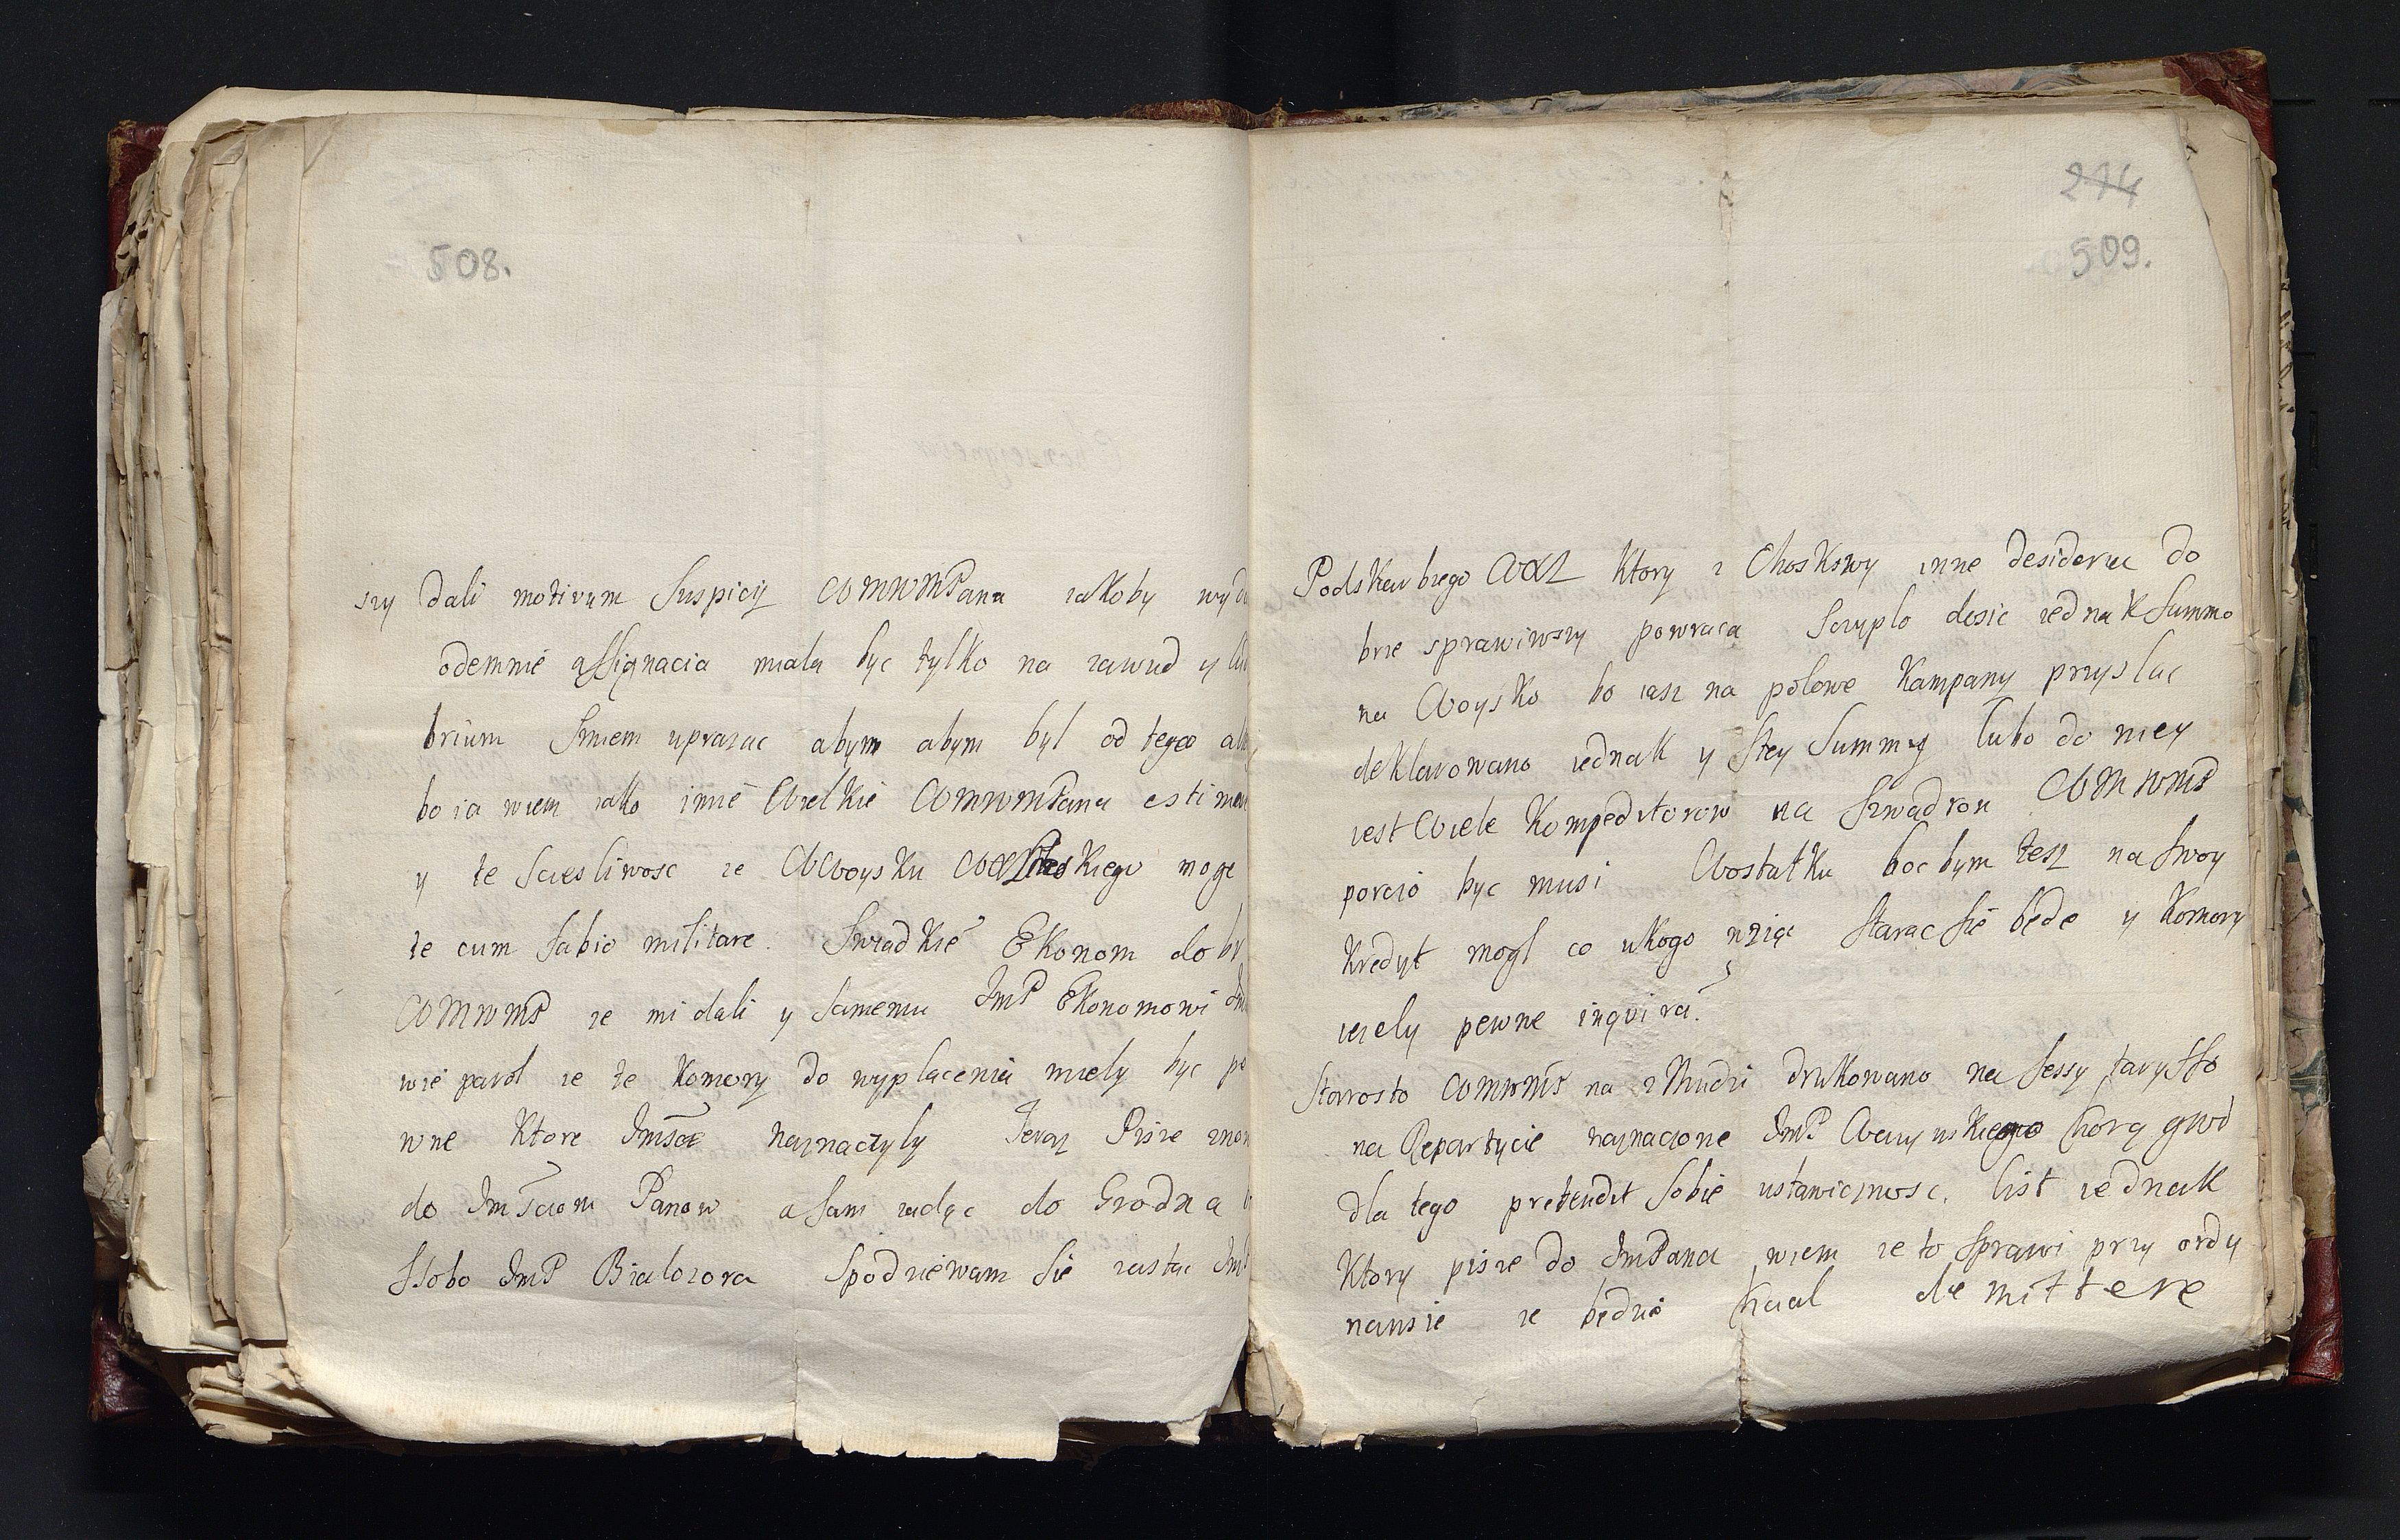 508.
szy dali motivum Suspicij WMMWMPana iakoby wyda
odemnie assignacia miala byc tylko na zawud y lu
brium Smiem uprazac abym abym byl od tego
bo ia wiem iako imie Wielkie WMMWMPana estimow
y te Scesliwosc ze WWoysku moge
te cum Labio militare. Swiadkie Ekonom dobr
WMMWMP ze mi dali y Samemu JmP Ekonomowi
wie parol ze te Komory do wyplacenia miely byc pe
wne Ktore Jmscie naznaczyly Teraz Pisze znow
do Jmsciom Panow a Sam iadąc do Grodna
Ssobo JmP Bialozora Spodziewam Sie zastac Jm
274
509.
Podskarbiego WXL Ktory z Choskowy inne desideria do
brze sprawiwszy powraca Scuplo dosic iednak Summo
na Woysko bo iasz na polowe Kampany przyslac
deklarowano iednak y Stey Summy lubo do niey
iest Wiele Kompeditorow na Szwadron WMMWMP
porcio byc musi Wostatku boc bym tesz na Swoy
Kredyt mogl co ukogo wziąc Starac Sie bede y Komory
iesely pewne inquira.
Starosto WMMWMP na zMudzi drukowano na Sessy taryffo
na Repartycie naznaczone JmP chorągwo
dla tego pretendit Sobie ustawicznosc. list iednak
Ktory pisze do JmPana wiem ze to Sprawi przy ordy
nansie ze bedzie chcial demittere